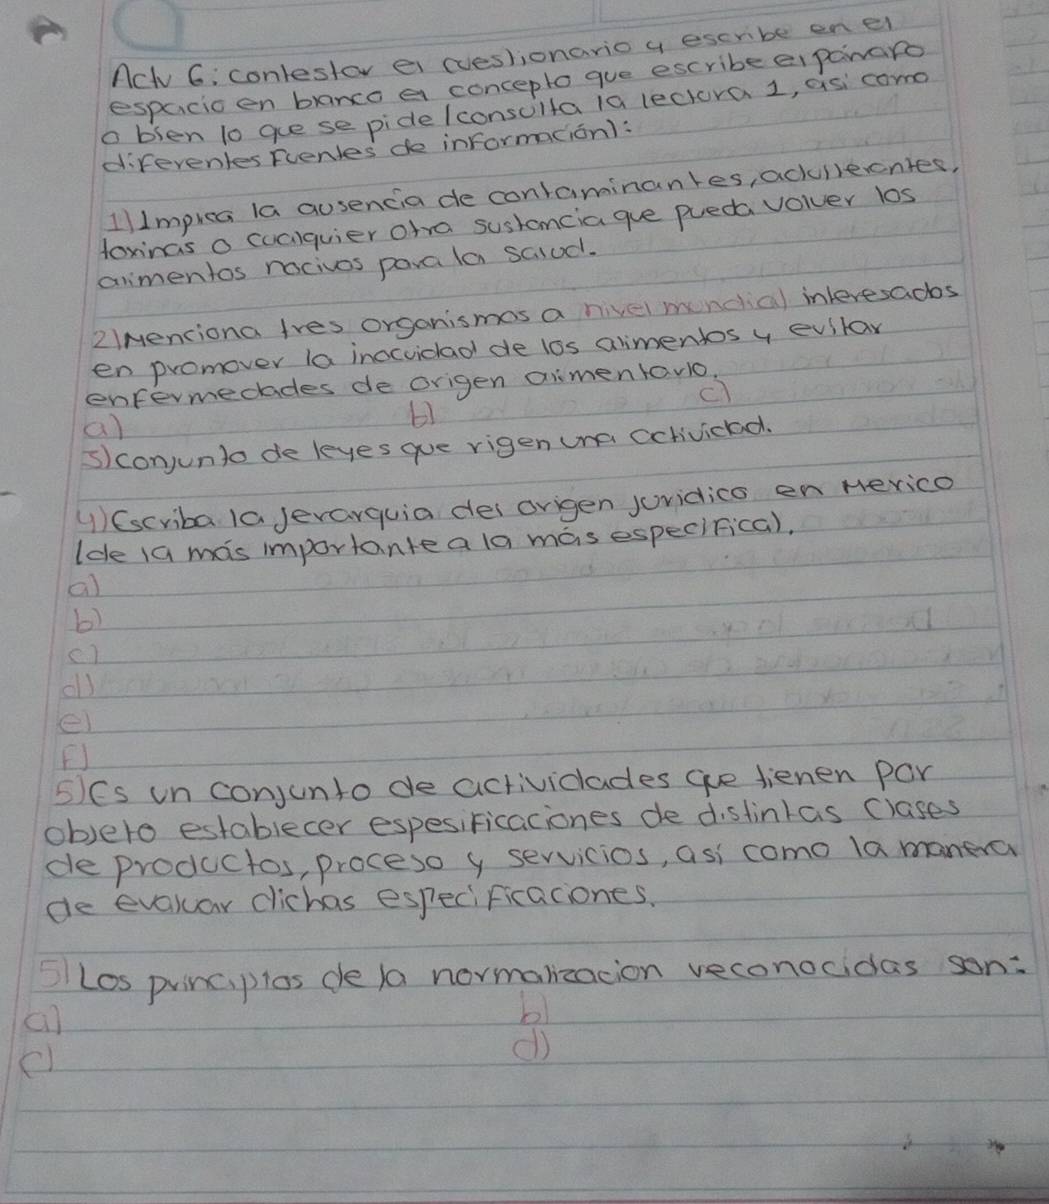 Actv 6: contestar el cuestionario y escribe en el
espacio en blanco el concepto que escribe el párrafo
o bien lo que se pide (consulta la lectura 1, asi como
diferentes fuentes de información):
1) Implica la ausencia de contaminantes, adulterantes,
toxinas o cualquier otra sustancia que pueda volver los
alimentos nocivos para la salud.
2) Menciona tres organismos a nivel mundial interesados
en promover la inocuidad de los alimentos y evitar
enfermedades de origen alimentario.
a) b) c)
3) conjunto de leyes que rigen una actividad.
4) Escriba la jerarquia del origen juridico en Mexico
(de la más importante a la más especifica).
a)
b)
c)
d)
e)
f)
5) Es un conjunto de actividades que tienen por
objeto establecer espesificaciones de distintas clases
de productos, proceso y servicios, asi como la manera
de evaluar dichas especificaciones.
5) Los principios de la normalizacion reconocidas son:
a) b)
c) d)